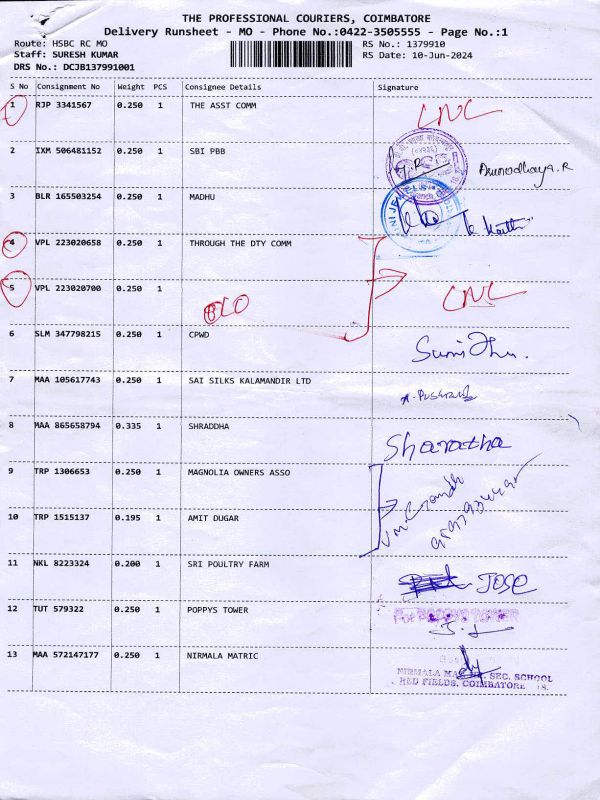 THE PROFESSIONAL COURIERS, COIMBATORE
Delivery Runsheet - MO - Phone No.:0422-3505555 - Page No.:1
Route: HSBC RC MO RS No.: 1379910
Staff: SURESH KUMAR RS Date: 10-Jun-2024
DRS No.: DCJB137991001
S No Consignment No Weight PCS Consignee Details Signature
1 RJP 3341567 0.250 1 THE ASST COMM
2 IXM 506481152 0.250 1 SBI PBB
3 BLR 165503254 0.250 1 MADHU
4 VPL 223020658 0.250 1 THROUGH THE DTY COMM
5 VPL 223020700 0.250 1
6 SLM 347798215 0.250 1 CPWD
7 MAA 105617743 0.250 1 SAI SILKS KALAMANDIR LTD
8 MAA 865658794 0.335 1 SHRADDHA Sharatha
9 TRP 1306653 0.250 1 MAGNOLIA OWNERS ASSO
10 TRP 1515137 0.195 1 AMIT DUGAR
11 NKL 8223324 0.200 1 SRI POULTRY FARM JOSE
12 TUT 579322 0.250 1 POPPYS TOWER
For POPPYS TOWER
13 MAA 572147177 0.250 1 NIRMALA MATRIC
NIRMALA SEC. SCHOOL
RED FIELDS, COIMBATORE 18.